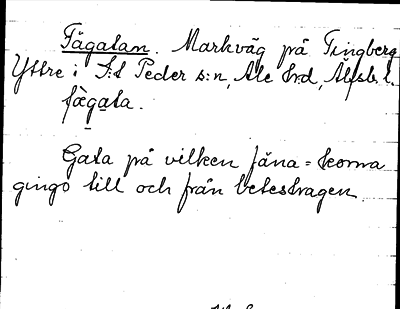 Fägatan. Markväg på Tingberg
Yttre i S:t Peder s:n, Ale hrd, Älfsb. l.
fä̀gata.
Gata på vilken fäna = korna
gingo till och från beteshagen.